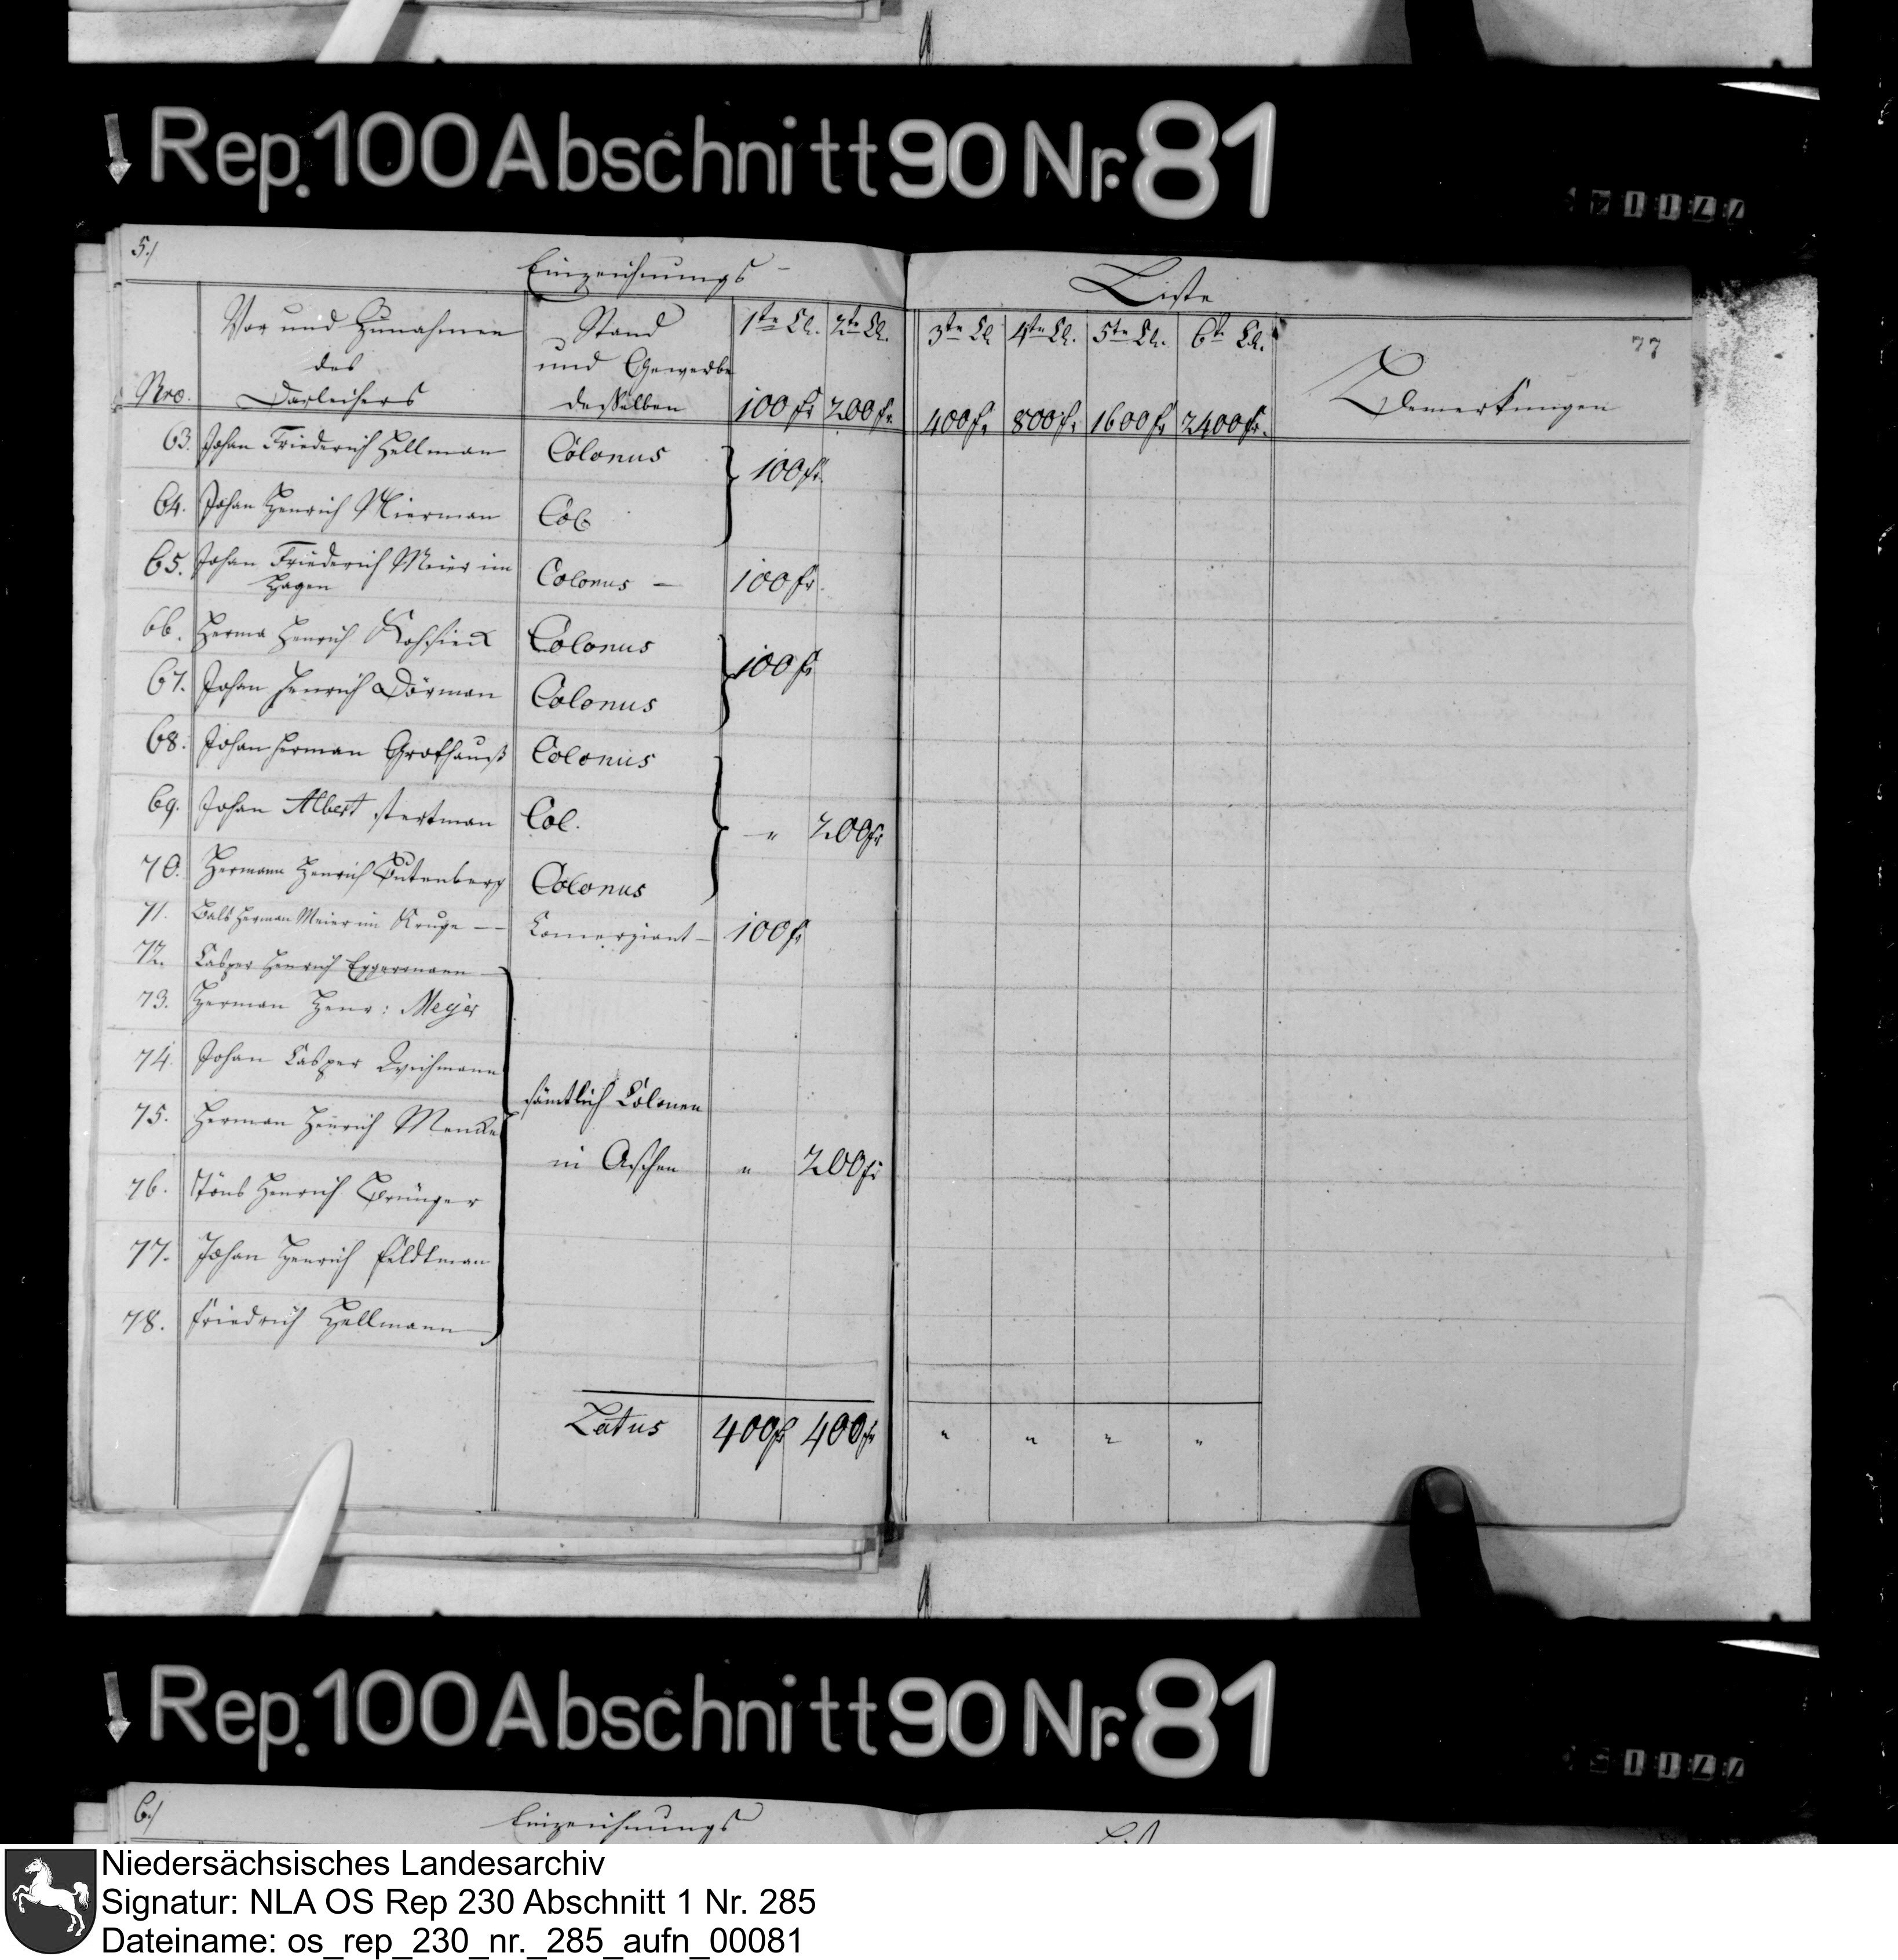 Rep. 100 Abschnitt 90 Nr. 81
5./
Einzeichnungs -
Liste
77
Nro.
Vor und Zunahmen
des
Darleihers
Stand
und Gewerbe
desselben
1te Cl.
100 fr
2te Cl.
200 fr.
3te Cl
400 fr
4te Cl.
800 fr.
5te Cl.
1600 fr
6te Cl.
2400 fr.
Bemerkungen
63. Johan Friederich Hellman Colonus 100 fr.
64. Johan Henrich Nierman Col
65. Johan Friederich Meier im Colonus — 100 fr.
Hagen
66. Herma Henrich Colonus 100 fr
67. Johan Henrich Dörman Colonus
68. Johan Herman Grothauß Colonus
69. Johan Albert stertman Col. " 200 fr
70. Hermann Henrich Butenberg Colonus
71. Bals Herman Meier im Kruge — Comerziant — 100 fr
72. Casper Henrich Eggermann
73. Herman Henr: Meÿer
74. Johan Casper Wichmann
sämtlich Colonen
75. Herman Henrich Mencke
in Aschen " 200 fr
76. Töns Henrich Brünger
77. Johan Henrich Feldtman
78. Friedrich Hellmann
Latus 400 fr 400 fr " " " "
Rep. 100 Abschnitt 90 Nr. 81
6./
Einzeichnungs
List
Niedersächsisches Landesarchiv
Signatur: NLA OS Rep 230 Abschnitt 1 Nr. 285
Dateiname: os_rep_230_nr._285_aufn_00081